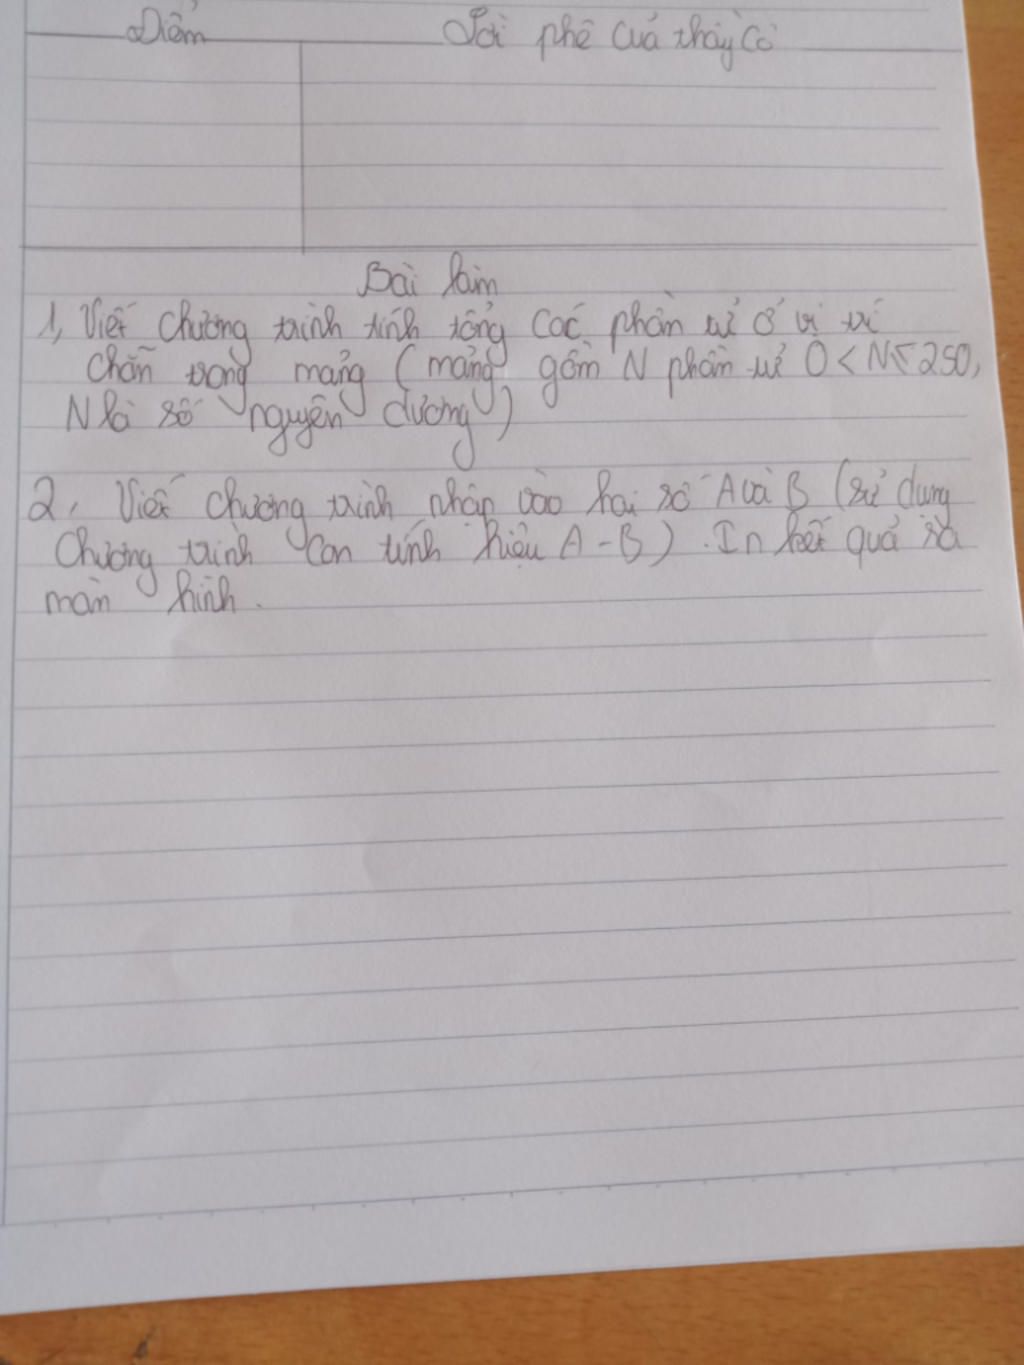 Điểm Lời phê của thầy cô
Bài làm
1, Viết chương trình tính tổng các phần tử ở vị trí
chẵn trong mảng (mảng gồm N phần tử 0 < N ≤ 250,
N là số nguyên dương)
2, Viết chương trình nhập vào hai số A và B (sử dụng
chương trình con tính hiệu A - B). In kết quả ra
màn hình.